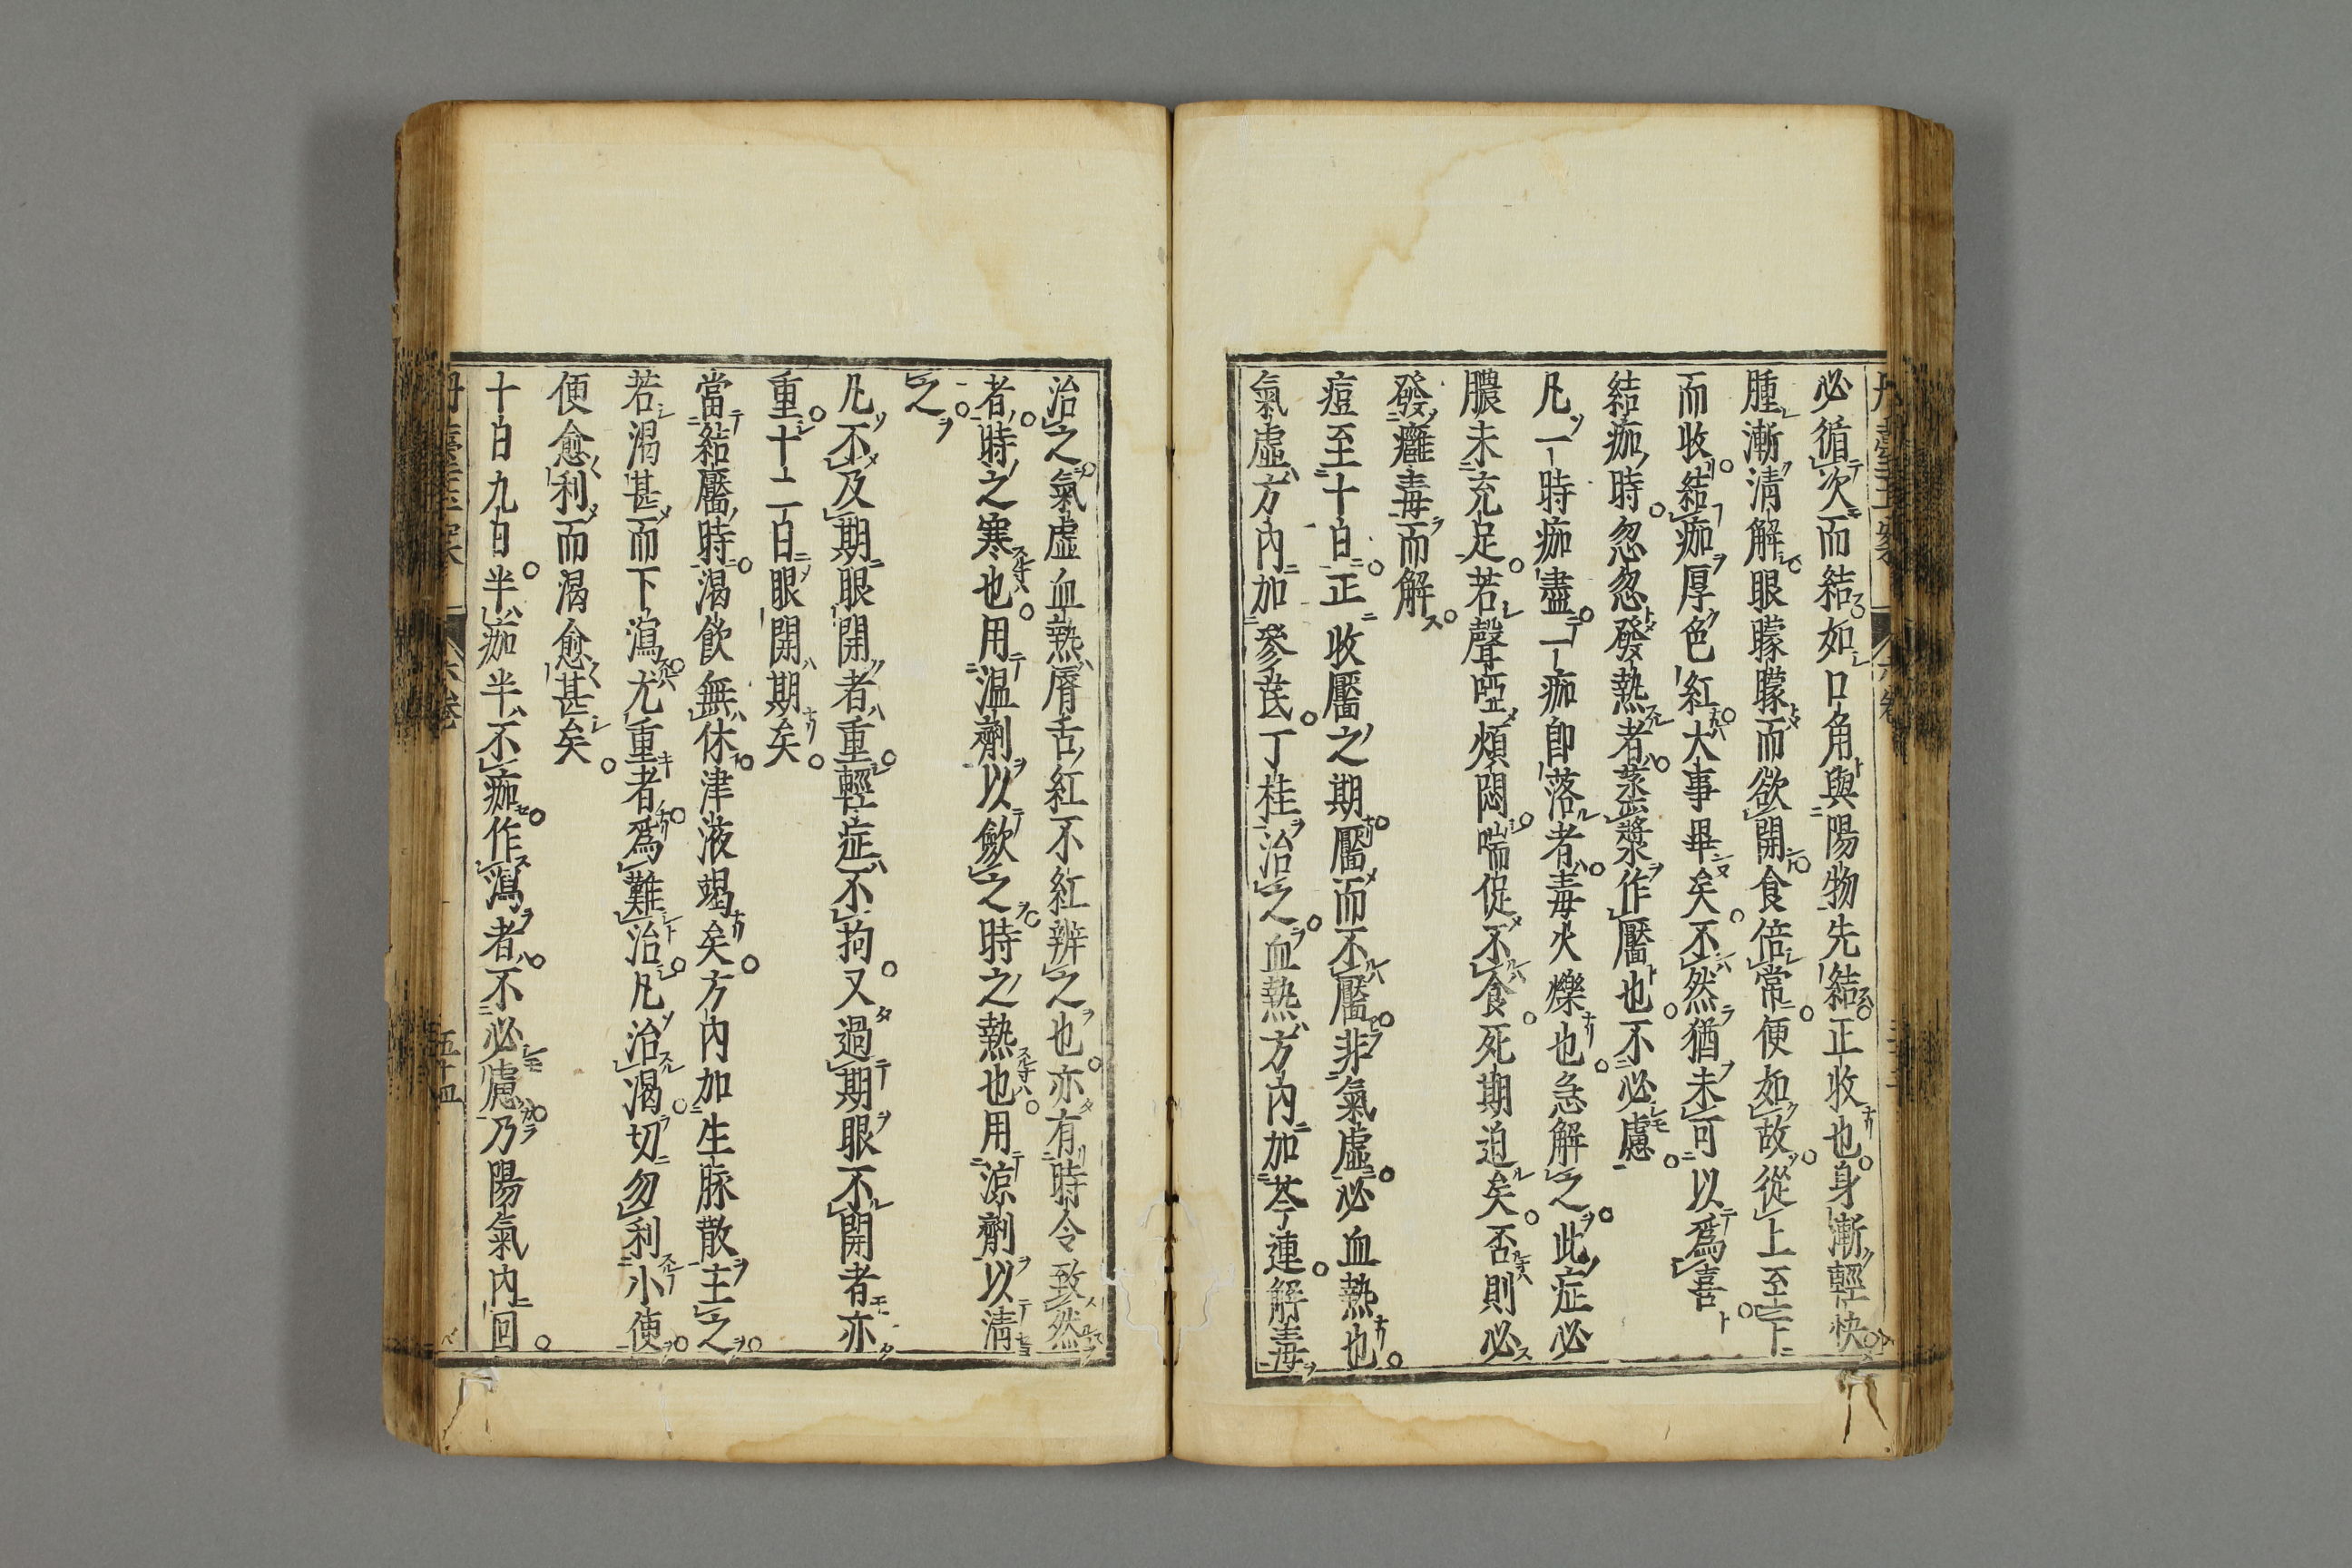 必循次而結如口角與陽物先結正收也身漸輕快
腫漸清解眼朦朦而欲開食倍常便如故從上至下
而收結痂厚色紅大事畢矣不然猶未可以爲喜
結痂時忽忽發熱者蒸漿作靨也不必慮
凡一時痂盡一痂卽落者毒火爍也急解之此症必
膿未充足若聲啞煩悶喘促不食死期迫矣否則必
發癰毒而解
痘至十日正收靨之期靨而不靨非氣虛必血熱也
氣虛方內加參芪丁桂治之血熱方內加芩連解毒
治之氣虛血熱脣舌紅不紅辨之也亦有時令致然
者時之寒也用温劑以歛之時之熱也用涼劑以清
之
凡不及期眼開者重輕症不拘又過期眼不開者亦
重十二日眼開期矣
當結靨時渴飲無休津液竭矣方內加生脉散主之
若渴甚而下瀉尤重者爲難治凡治渴切勿利小便
便愈利而渴愈甚矣
十日九日半痂半不痂作瀉者不必慮乃陽氣內回
六卷